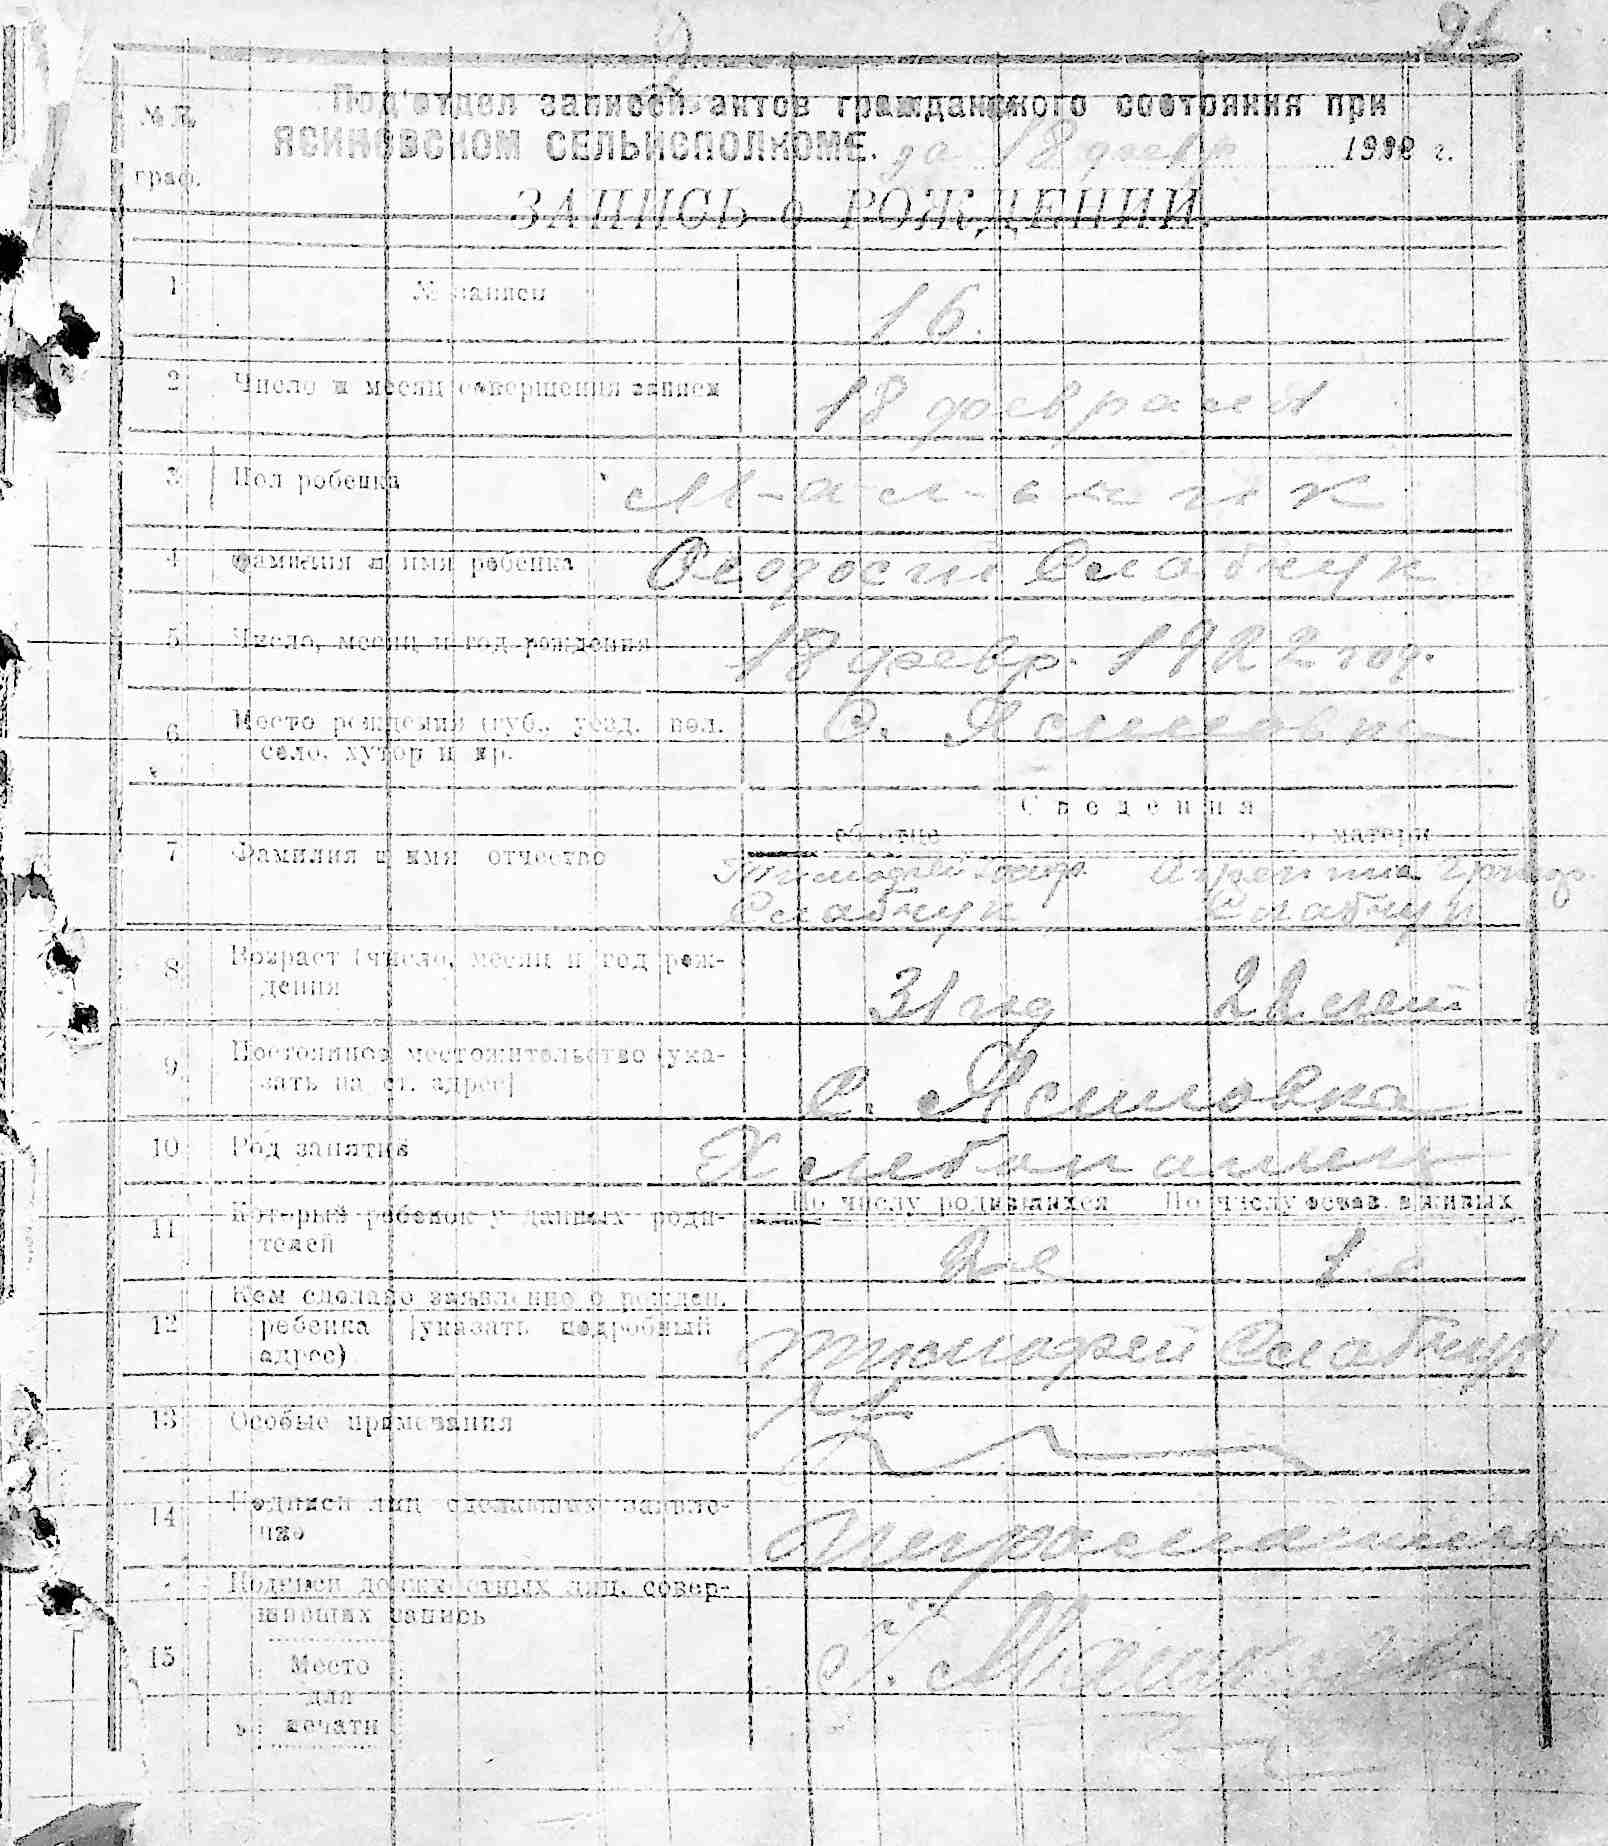 91
№ №
граф.
Под'отдел записей актов гражданского состояния при
ЯСИНОВСКОМ СЕЛЬИСПОЛКОМЕ. за 18 февр 1922 г.
ЗАПИСЬ о РОЖДЕНИИ.
1 № записи 16.
2 Число и месяц совершения записи 18 февралея
3 Пол ребенка Мальчик
4 Фамилия и имя ребенка Феодосий Слабчук
5 Число, месяц и год рождения 18 февр. 1922 год.
6 Место рождения (губ., уезд. вол. С. Ясиновка
село, хутор и пр.
Сведения
об отце о матери
7 Фамилия и имя отчество Тимофей
Слабчук Слабчук
8 Возраст (число, месяц и год рож- 31 год 22 лет
дения
9 Постоянное местожительство (ука- с. Ясиновка
зать на ст. адрес)
10 Род занятия Хлебопашец
По числу родившихся По числу остав. в живых
11 Который ребенок у данных роди- 2-е 1-е
телей
Кем сделано заявление о рожден.
12 ребенка [указать подробный Тимофей Слабчук
адрес)
13 Особые примечания
14 Подписи лиц сделавших заявле-
ние
Подписи должностных лиц, совер-
шивших запись
15 Место
для
печати